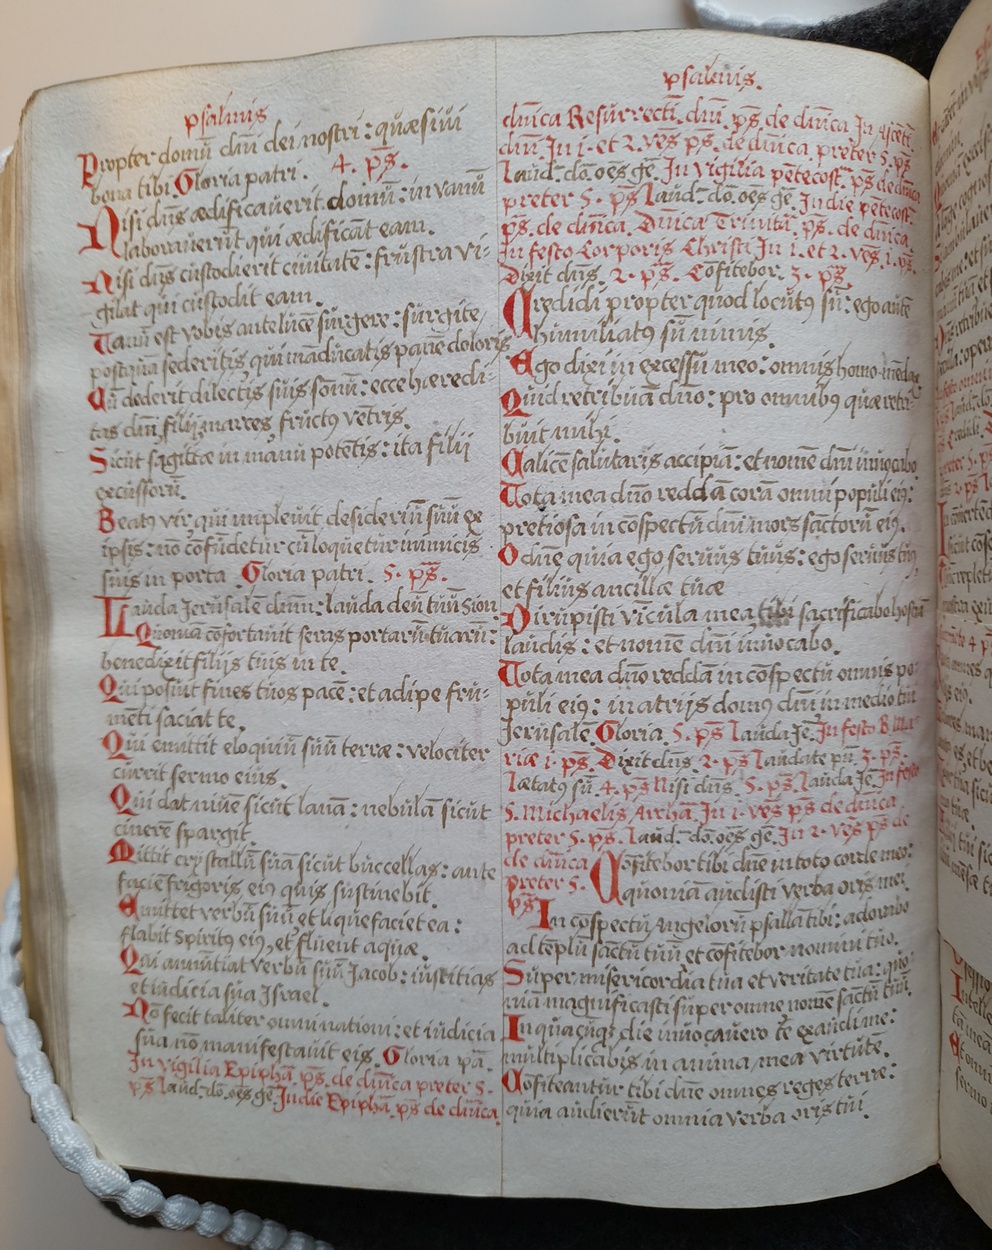 psalmis
Propter domū dn̄i dei nostri: quæsiui
bona tibi Gloria patri. 4. ps̄.
Nisi dn̄s ædificauerit domū: in vanū
laborauerūt qui ædificāt eam.
Nisi dn̄s custodierit ciuitatē: frustra vi-
gilat qui custodit eam.
Vanū est vobis ante lucē surgere: surgite
postquā sederitis qui māducatis panē doloris
Cū dederit dilectis suis somnū: ecce hæredi-
tas dn̄i filij, merces, fructꝰ vētris.
Sicut sagittæ in manū potētis: ita filij
excussorū.
Beatꝰ vir, qui impleuit desideriū suū ex
ipsis: nō cōfūdetur cū loquetur inimicis
suis in porta. Gloria patri. 5. ps̄.
Lauda Jerusalē dn̄m: lauda deū tuū Sion
Quoniā cōfortauit seras portarū tuarū:
benedixit filijs tuis in te.
Qui posuit fines tuos pacē: et adipe frū-
mēti saciat te.
Qui emittit eloquiū suū terræ: velociter
currit sermo eius.
Qui dat niuē sicut lanā: nebulā sicut
cinerē spargit.
Mittit crystallū suā sicut buccellas: ante
faciē frigoris eiꝰ quis sustinebit.
Emittet verbū suū et liquefaciet ea:
flabit Spiritꝰ eiꝰ, et fluent aquæ.
Qui annūtiat verbū suū Jacob: iustitias
et iudicia sua Israel.
Nō fecit taliter omni nationi: et iudicia
sua nō manifestauit eis. Gloria pā.
In vigilia Epiphā. ps̄. de dn̄ica preter 5.
ps̄ laud. dō. oēs gē. In die Epiphā. ps̄ de dn̄ica
psalmis.
dn̄ica Resurrecti. dn̄i. ps̄ de dn̄ica. In Ascēti.
dn̄i. In 1. et 2. ves̄ ps̄. de dn̄ica. preter 5. ps̄.
laud. dō. oēs gē. In vigilia pētecost. ps̄ de dn̄ica
preter 5. ps̄ laud. dō. oēs gē. In die pētecost.
ps̄. de dn̄ica. Dn̄ica Trinitā. ps̄. de dn̄ica.
In festo Corporis Christi In 1. et 2. ves̄. 1. ps̄.
Dixit dn̄s. 2. ps̄. Cōfitebor. 3. ps̄.
Credidi propter quod locutꝰ sū: ego autē
humiliatꝰ sū nimis.
Ego dixi in excessu meo: omnis homo mēdax
Quid retribuā dn̄o: pro omnibꝰ quæ retri-
buit mihi.
Calicē salutaris accipiā: et nomē dn̄i inuocabo
Vota mea dn̄o reddā corā omni populi eiꝰ:
pretiosa in cōspectū dn̄i mors sāctorū eiꝰ.
O dn̄e quia ego seruus tuus: ego seruus tuꝰ
et filius ancillæ tuæ
Dirupisti vīcula mea tibi sacrificabo hostiā
laudis: et nomē dn̄i inuocabo.
Vota mea dn̄o reddā in cōspectū omnis po-
puli eiꝰ: in atrijs domꝰ dn̄i in medio tui
Jerusalē. Gloria. 5. ps̄ lauda Jē. In festo B. Ma-
riæ 1. ps̄. Dixit dn̄s. 2. ps̄ laudate pū. 3. ps̄.
lætatꝰ sū. 4. ps̄ Nisi dn̄s. 5. ps̄. lauda Jē. In festo
S. Michaelis Archā. In 1. ves̄ ps̄ de dn̄ica
preter 5. ps̄. laud. dō. oēs gē. In 2. ves̄ ps̄ de
de dn̄ica
preter 5.
ps̄.
Cōfitebor tibi dn̄e in toto corde meo:
quoniā audisti verba oris mei
In cōspectū Angelorū psallā tibi: adorabo
ad tēplū sāctū tuū et cōfitebor nomini tuo.
Super misericordia tua et veritate tua: quo-
niā magnificasti super omne nomē sāctū tuū.
In quacūqꝫ die inuocauero te exaudi me:
multiplicabis in anima mea virtutē.
Cōfiteantur tibi dn̄e omnes reges terræ:
quia audierūt omnia verba oris tui.